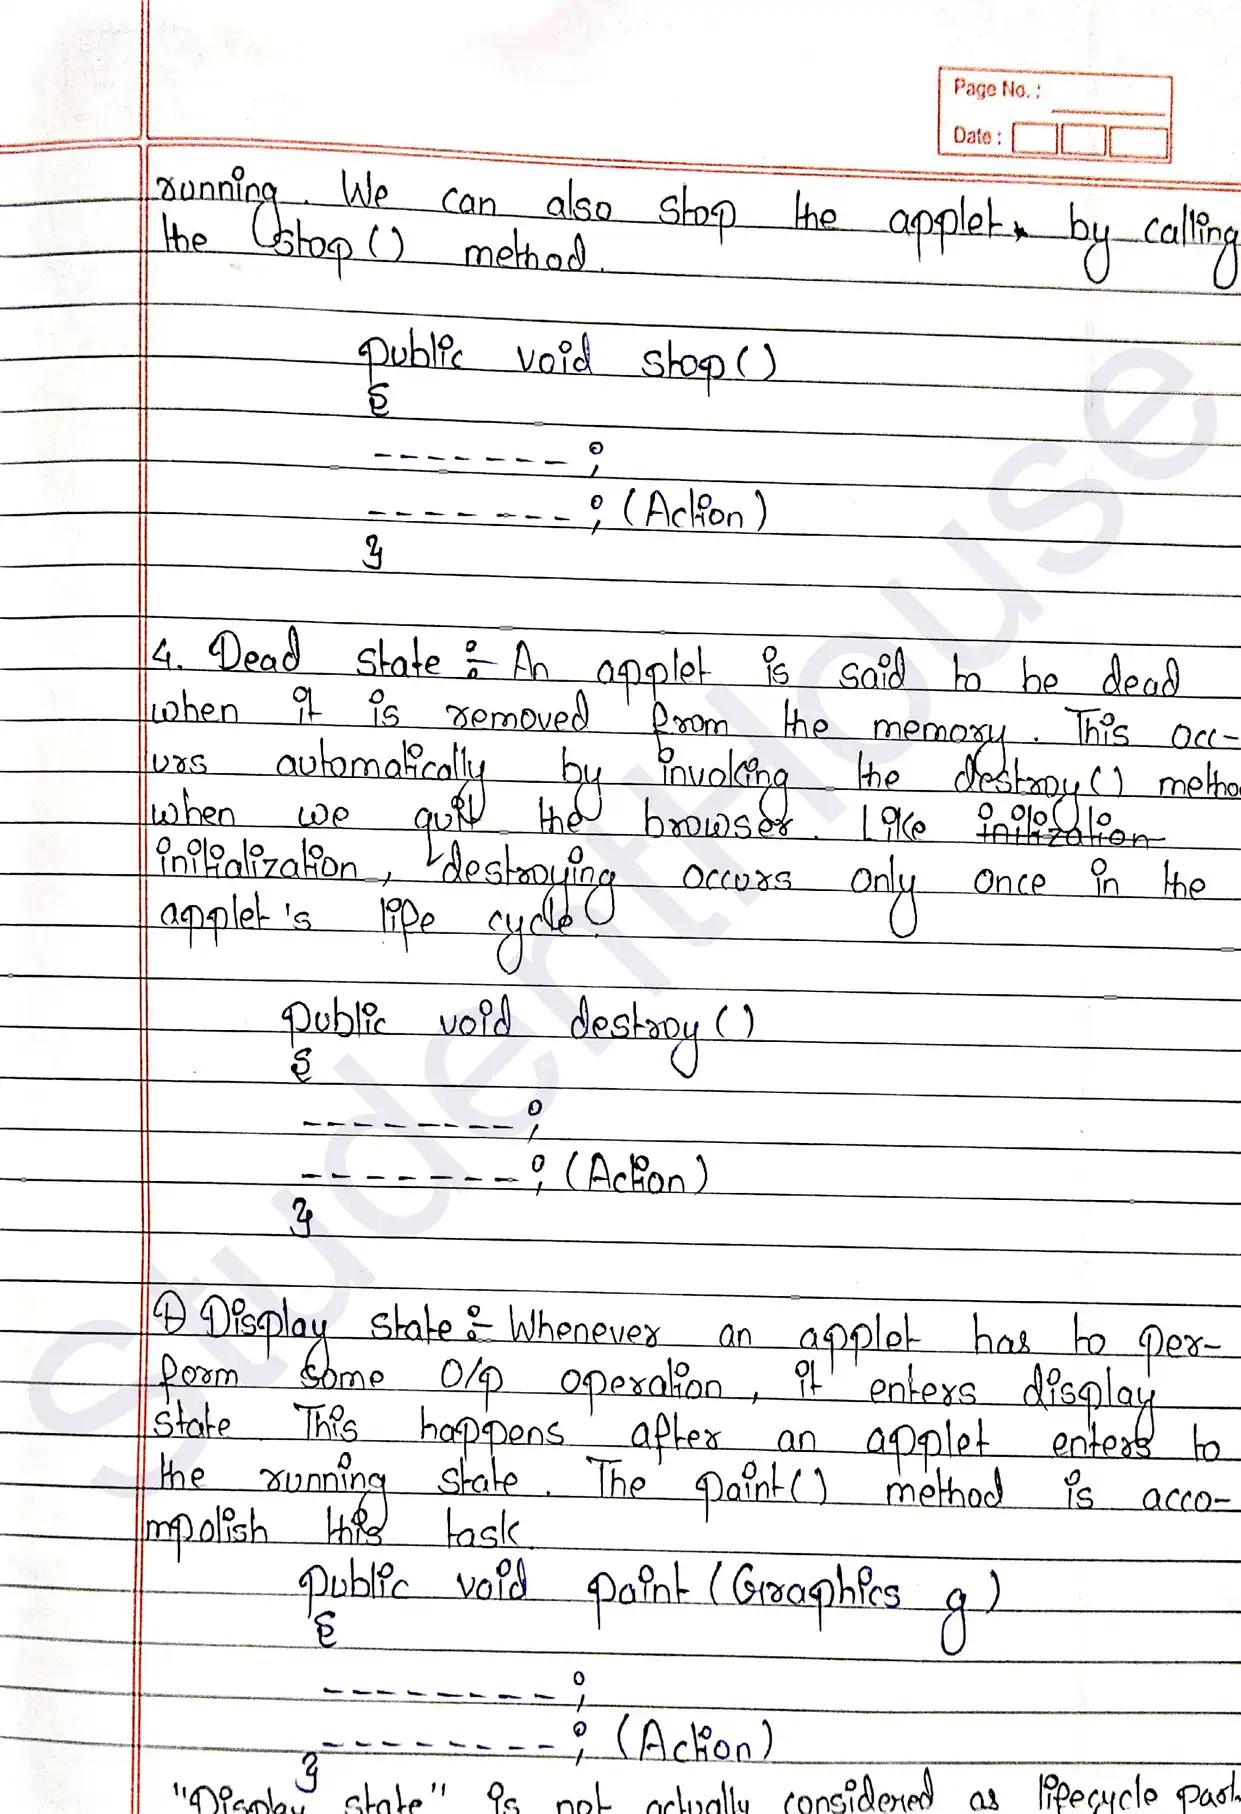 Page No. :
Date :
running. We can also stop the applet by calling
the stop() method.
public void stop()
{
- - - - - - - ;
- - - - - - - - ; (Action)
}
4. Dead state :- An applet is said to be dead
when it is removed from the memory. This occ-
urs automatically by invoking the destroy() metho
when we quit the browser. Like initilization
initialization, destroying occurs only once in the
applet's life cycle.
public void destroy()
{
- - - - - - - - ;
- - - - - - - - ; (Action)
}
1) Display state :- Whenever an applet has to per-
form some O/p operation, it enters display
state. This happens after an applet enters to
the running state. The paint() method is acco-
mpolish this task.
public void paint(Graphics g)
{
- - - - - - - - - ;
- - - - - - - - - ; (Action)
}
"Display state" is not actually considered as lifecycle part
StudentHouse